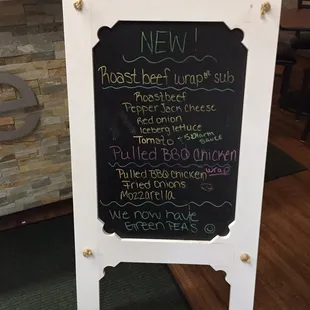 NEW!
Roast beef wrap or sub
Roastbeef
Pepper Jack Cheese
Red onion
Iceberg lettuce
Tomato
Sauce
Pulled BBQ Chicken
wrap
Pulled BBQ chicken
Fried onions
Mozzarella
We now have
Green PEAS